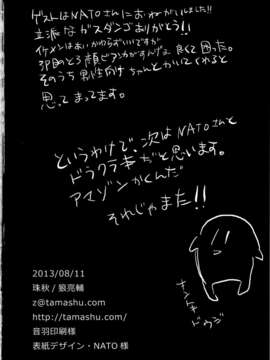 ゲストはNATOさんにおねがいしました!!
立派なガスダンゴありがとう!!
イケメンはあいかわらずいいですが
良くて困った。
そのうち男性向けちゃんとかいてくれると
思ってまってます。
というわけで、次はNATOさんと
ドラクラ本だと思います。
アマゾンかくんだ
それじゃまた!!
2013/08/11
珠秋/狼亮輔
z@tamashu.com
http://tamashu.com/
音羽印刷様
表紙デザイン・NATO様